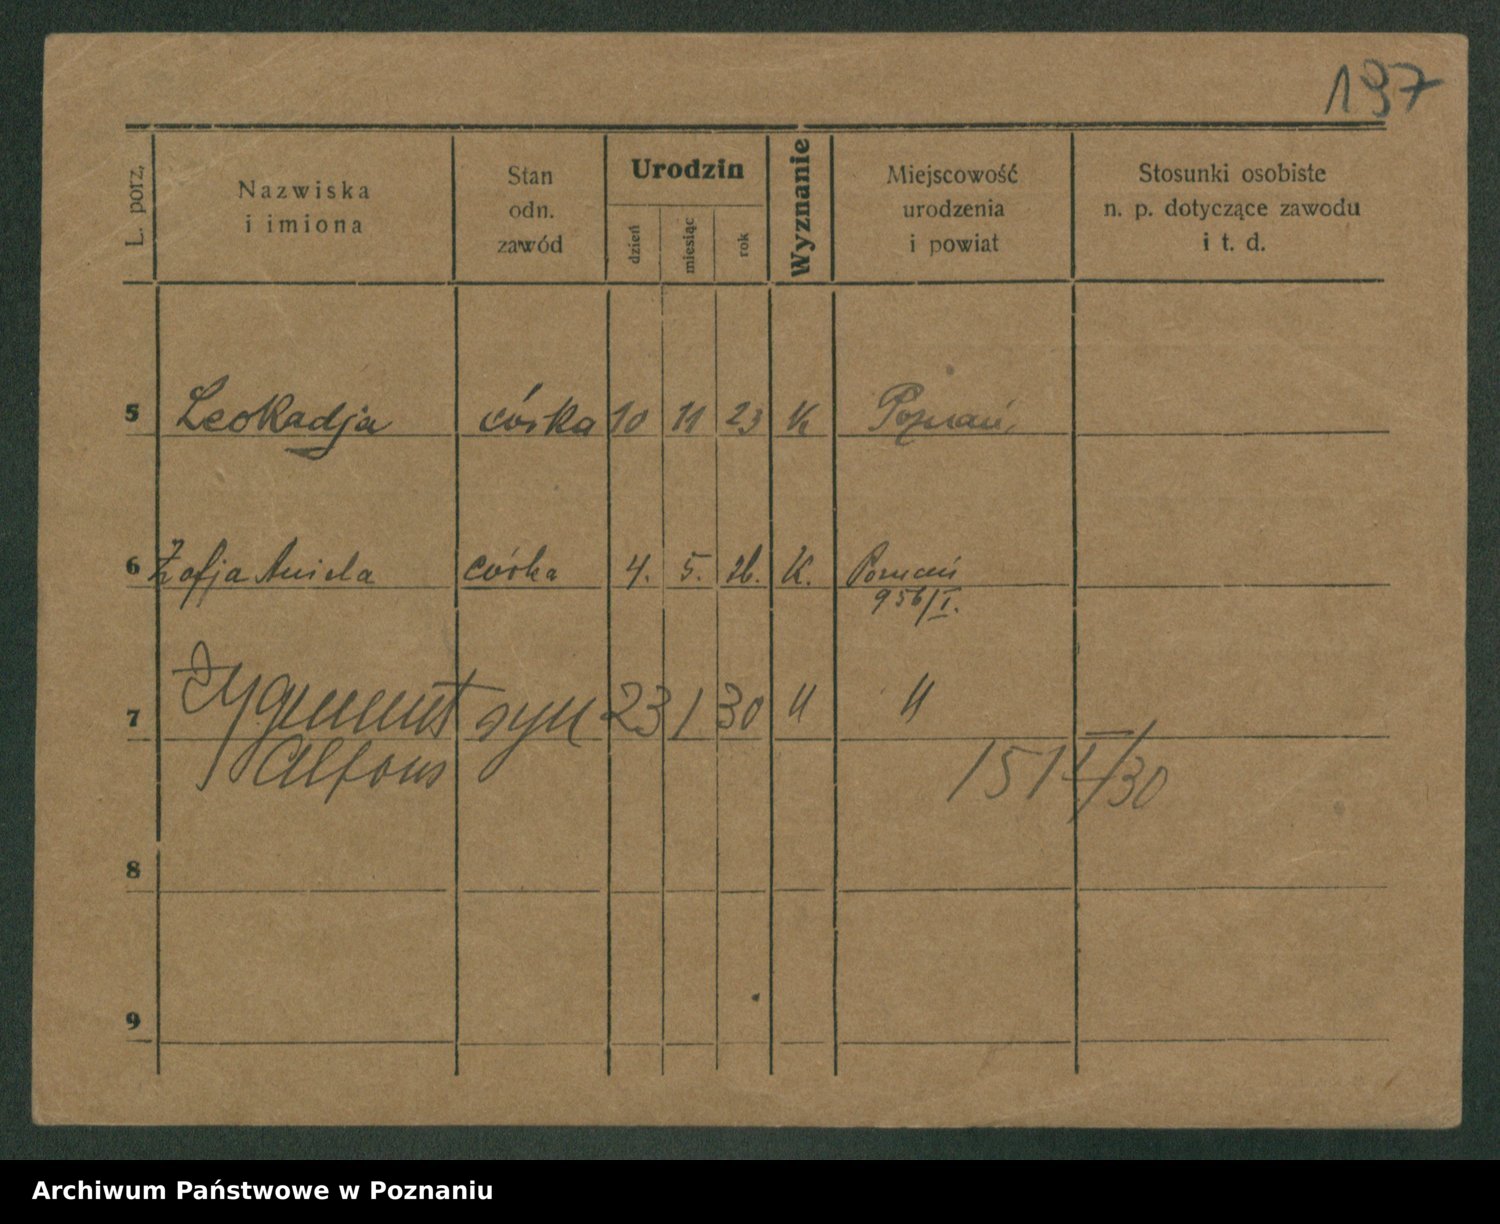 197
L. porz.
Nazwiska
i imiona
Stan
odn.
zawód
Urodzin
dzień
miesiąc
rok
Wyznanie
Miejscowość
urodzenia
i powiat
Stosunki osobiste
n. p. dotyczące zawodu
i t. d.
5 Leokadja córka 10 11 23 K Poznań,
6 Zofja Aniela córka 4. 5. 26. K. Poznań
956/I.
7 Zygmunt syn 23 1 30 " "
Alfons 151 I/30
8
9
Archiwum Państwowe w Poznaniu